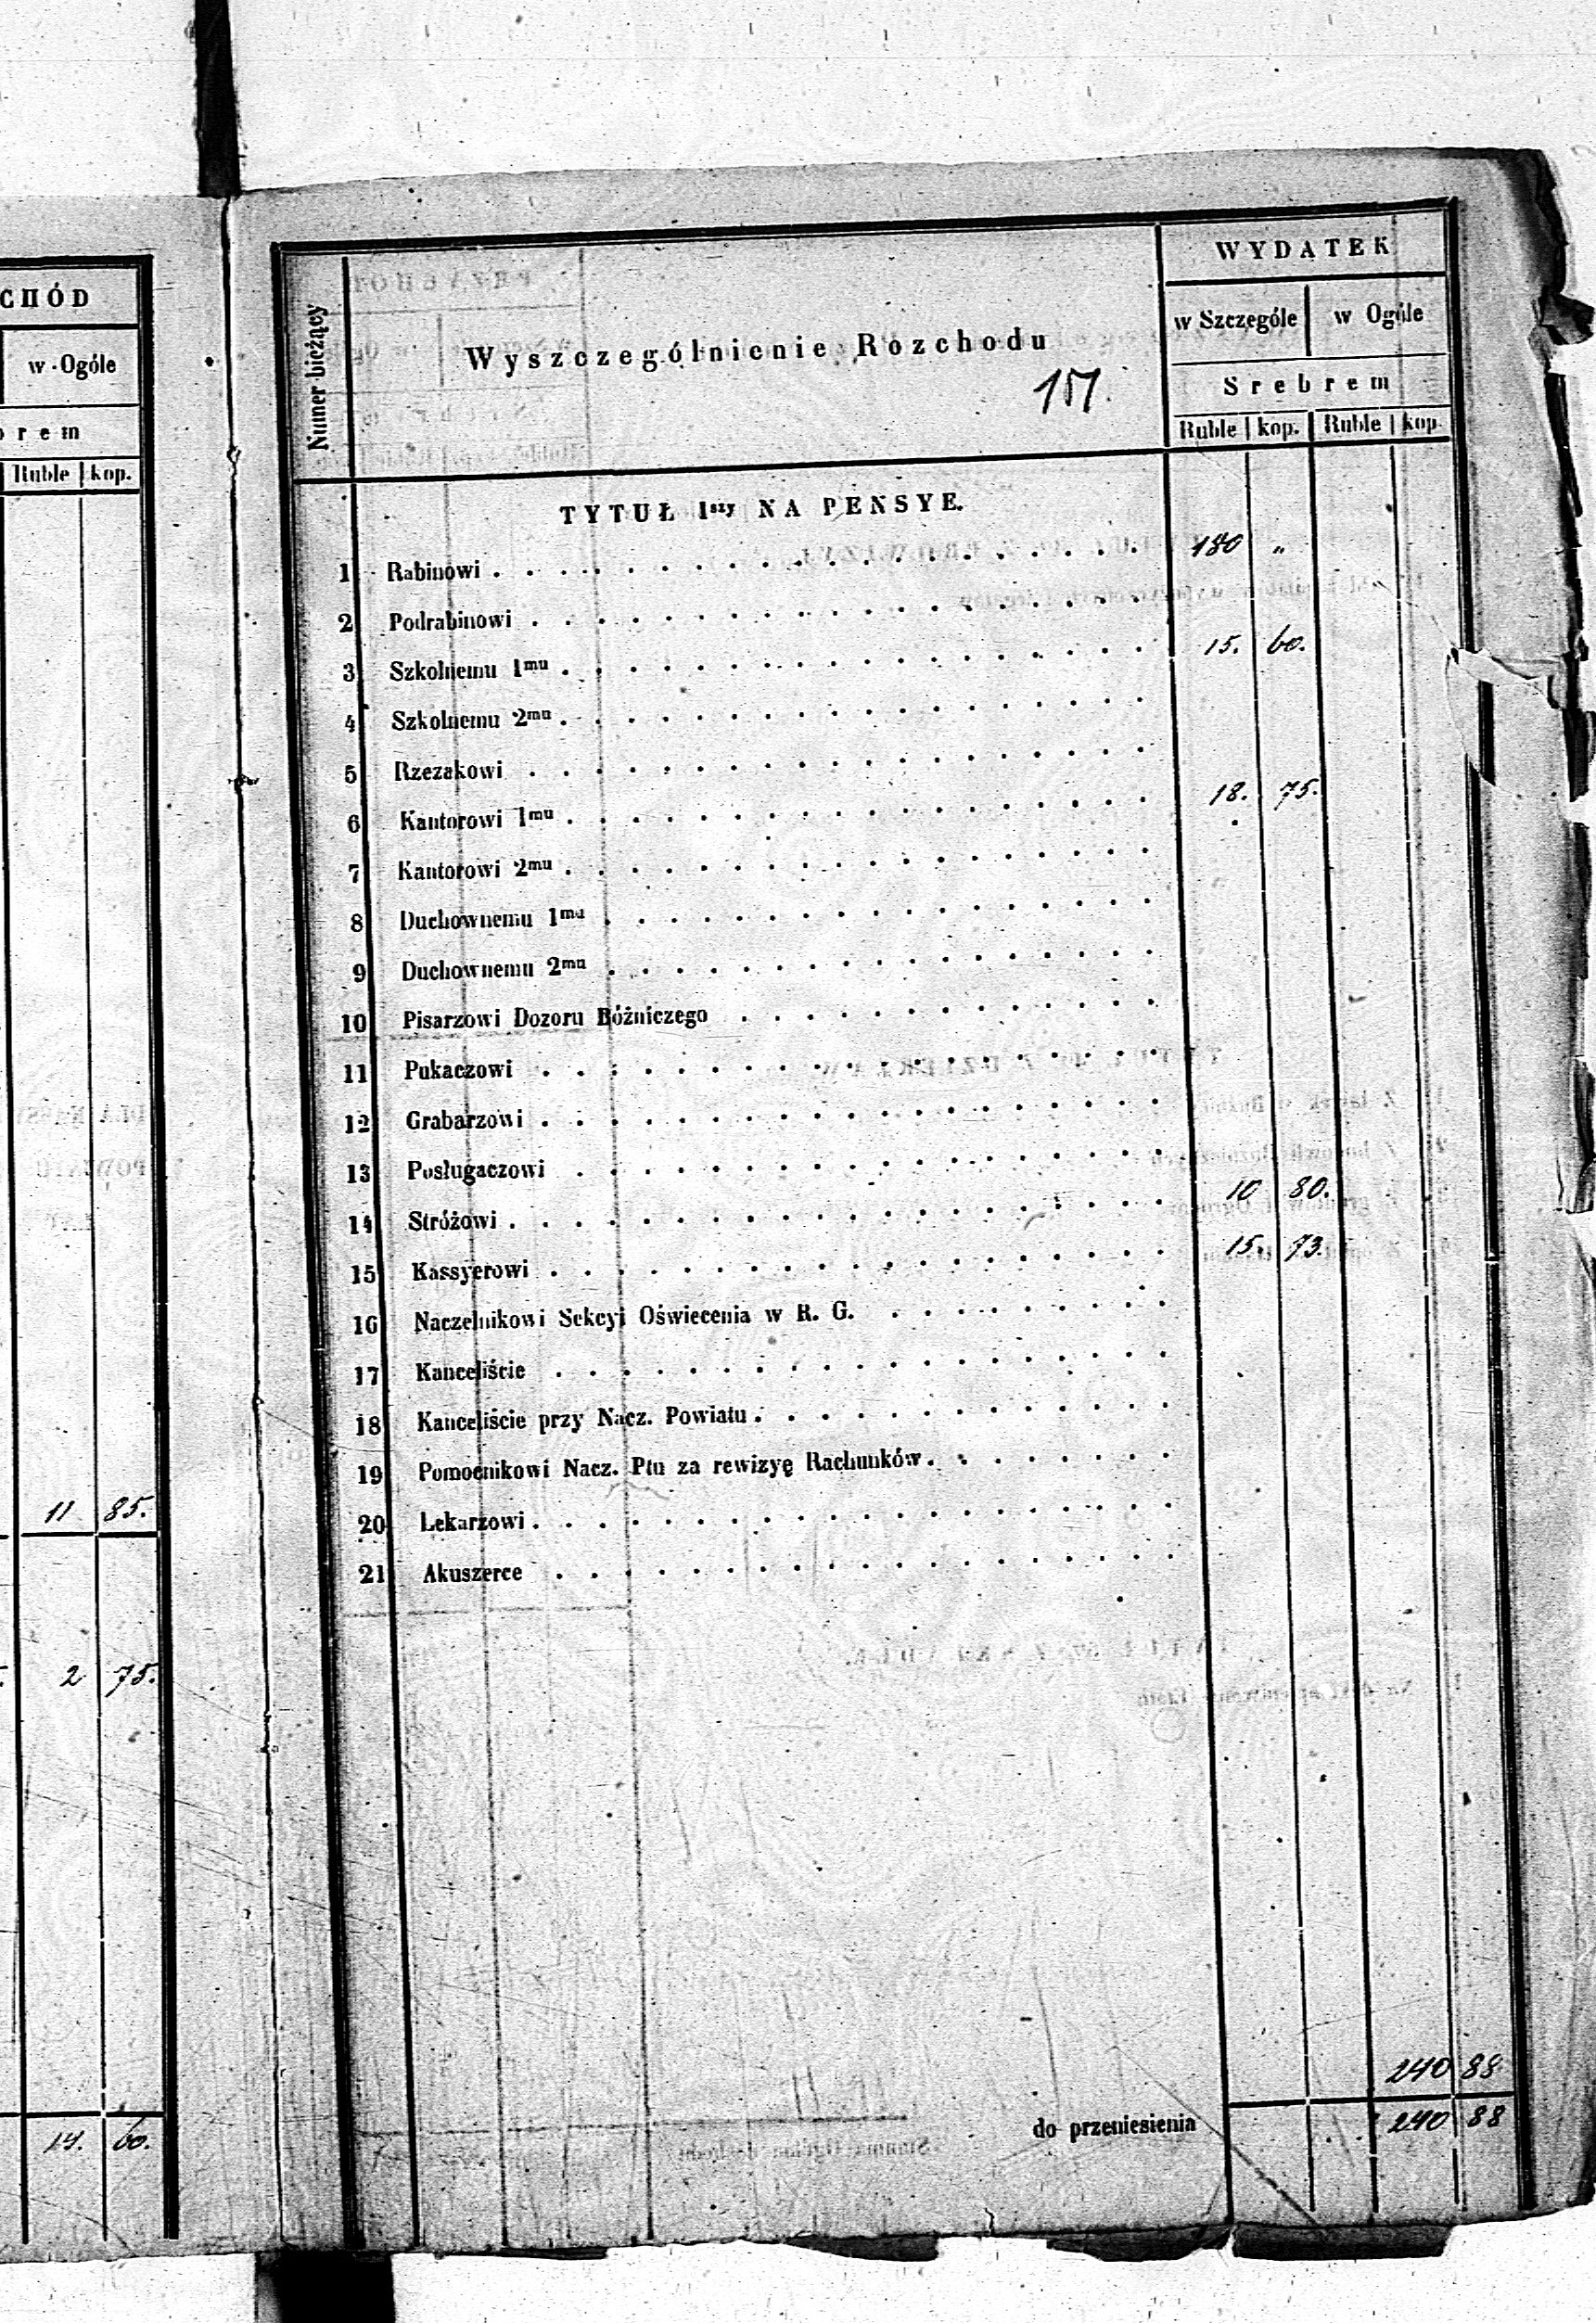 CHÓD
w Ogóle
rem
Ruble kop.
11 85.
2 75.
14. 60.
Numer bieżący
Wyszczególnienie Rozchodu
WYDATEK
w Szczególe w Ogóle
Srebrem
Ruble kop. Ruble kop.
TYTUŁ 1szy NA PENSYE.
1 Rabinowi . . . . . 180 „
2 Podrabinowi . . . . .
3 Szkolnemu 1mu . . . . . 15. 60.
4 Szkolnemu 2mu . . . . .
5 Rzezakowi . . . . .
6 Kantorowi 1mu . . . . . 18. 75.
7 Kantorowi 2mu . . . . .
8 Duchownemu 1mu . . . . .
9 Duchownemu 2mu . . . . .
10 Pisarzowi Dozoru Bóżniczego . . . . .
11 Pukaczowi . . . . .
12 Grabarzowi . . . . .
13 Posługaczowi . . . . .
14 Stróżowi . . . . . 10 80.
15 Kassyerowi . . . . . 15. 73.
16 Naczelnikowi Sekcyi Oświecenia w R. G. . . . . .
17 Kanceliście . . . . .
18 Kanceliście przy Nacz. Powiatu . . . . .
19 Pomocnikowi Nacz. Ptu za rewizyę Rachunków . . . . .
20 Lekarzowi . . . . .
21 Akuszerce . . . . .
240 88
do przeniesienia 240 88